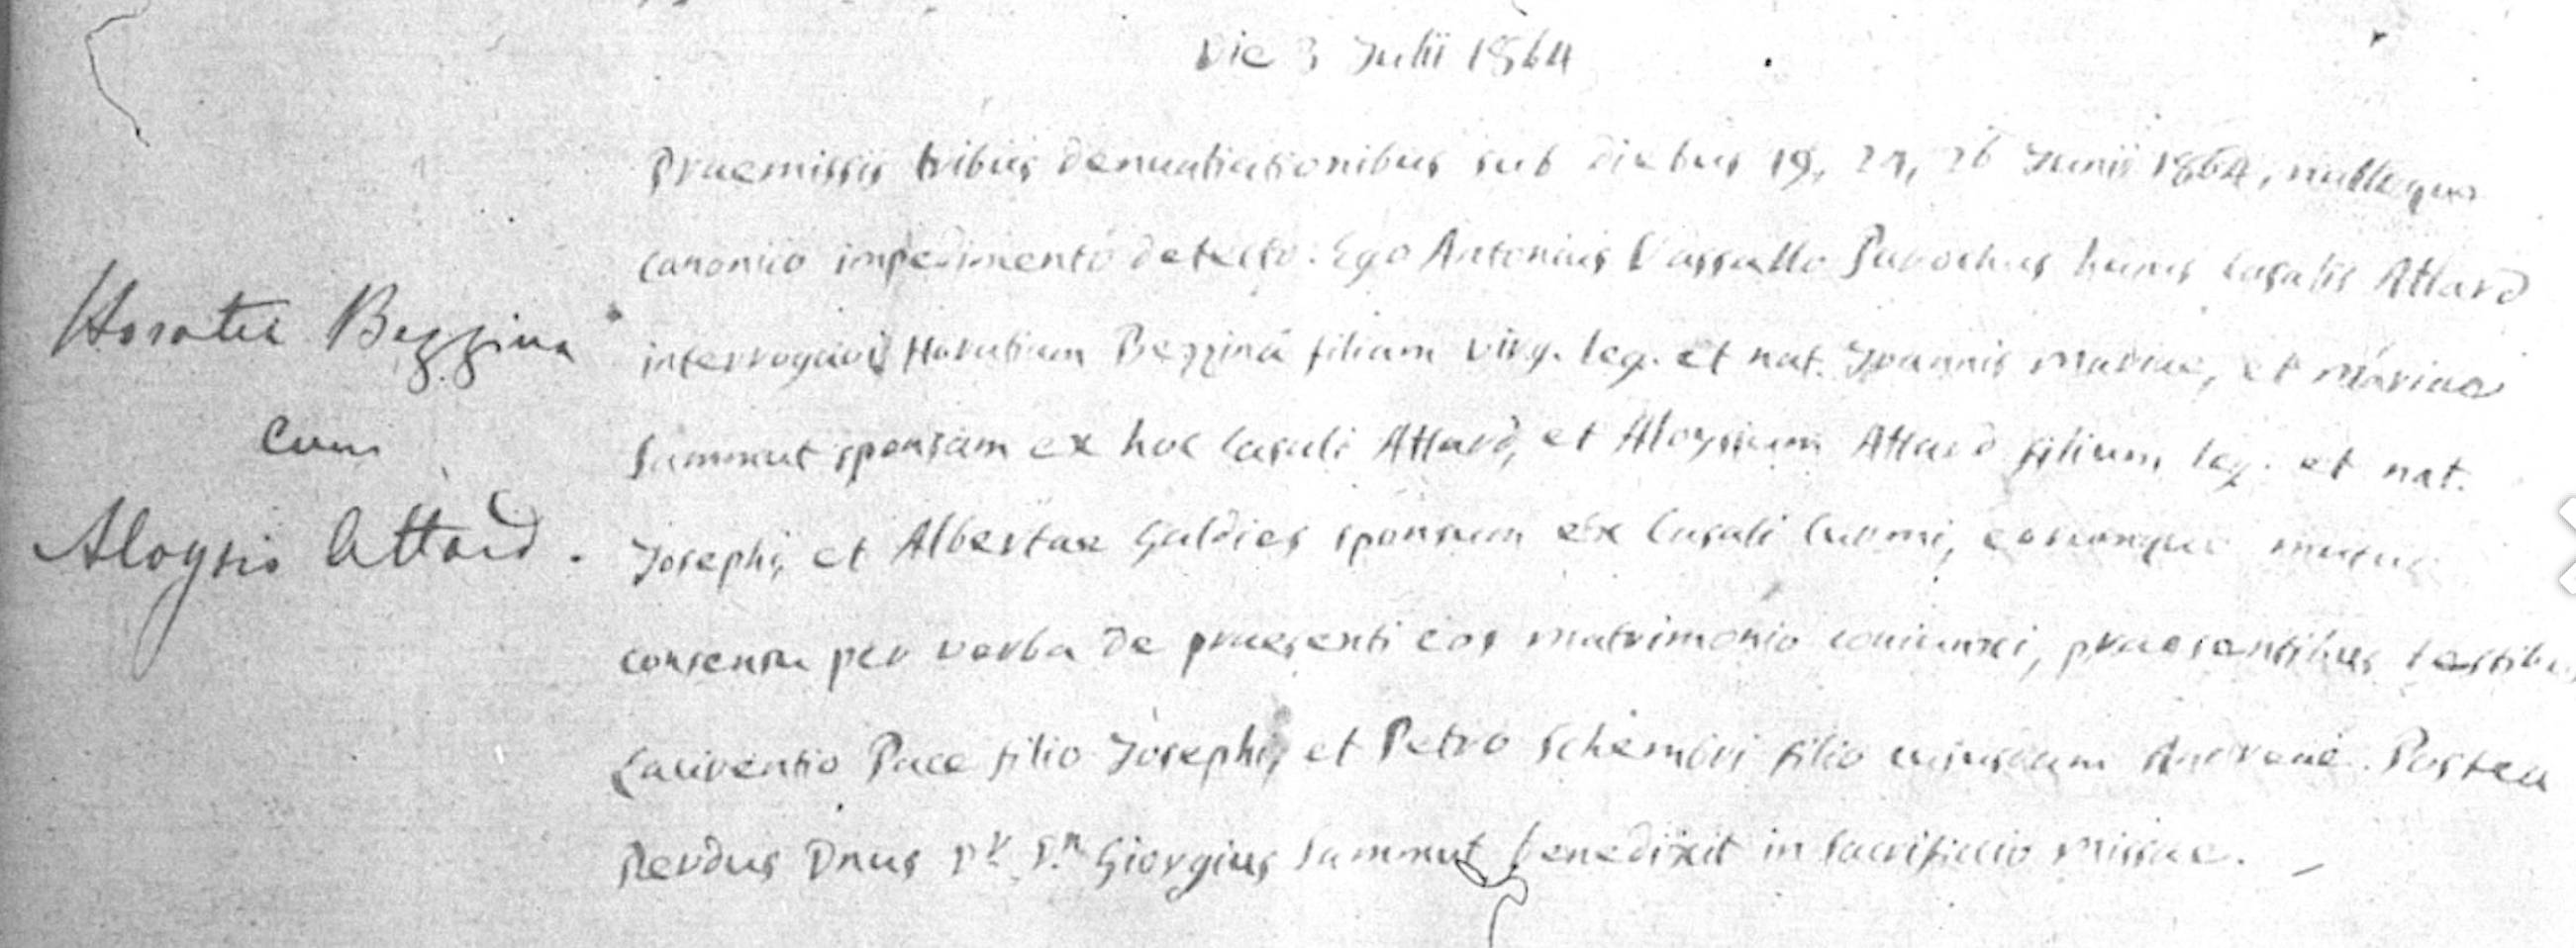 Die 3 Julii 1864
Praemissis tribus denuntiationibus sub diebus 19, 24, 26 Junii 1864, nulloque
canonico impedimento detecto: Ego Antonius Vassallo Parochus hujus Casalis Attard
Horatia Bezzina
interrogavi Horatiam Bezzina filiam virg. leg. et nat. Joannis Mariae, et Mariae
cum
Sammut sponsam ex hoc Casali Attard, et Aloysium Attard filium leg. et nat.
Aloysio Attard.
Josephi, et Albertae Galdies sponsum ex Casali Curmi, eorumque mutuo
consensu per verba de praesenti eos matrimonio coniunxi, praesentibus testibus
Laurentio Pace filio Josephi, et Petro Schembri filio Andreae. Postea
Rerdus Dnus Giorgius Sammut benedixit in sacrificio missae.